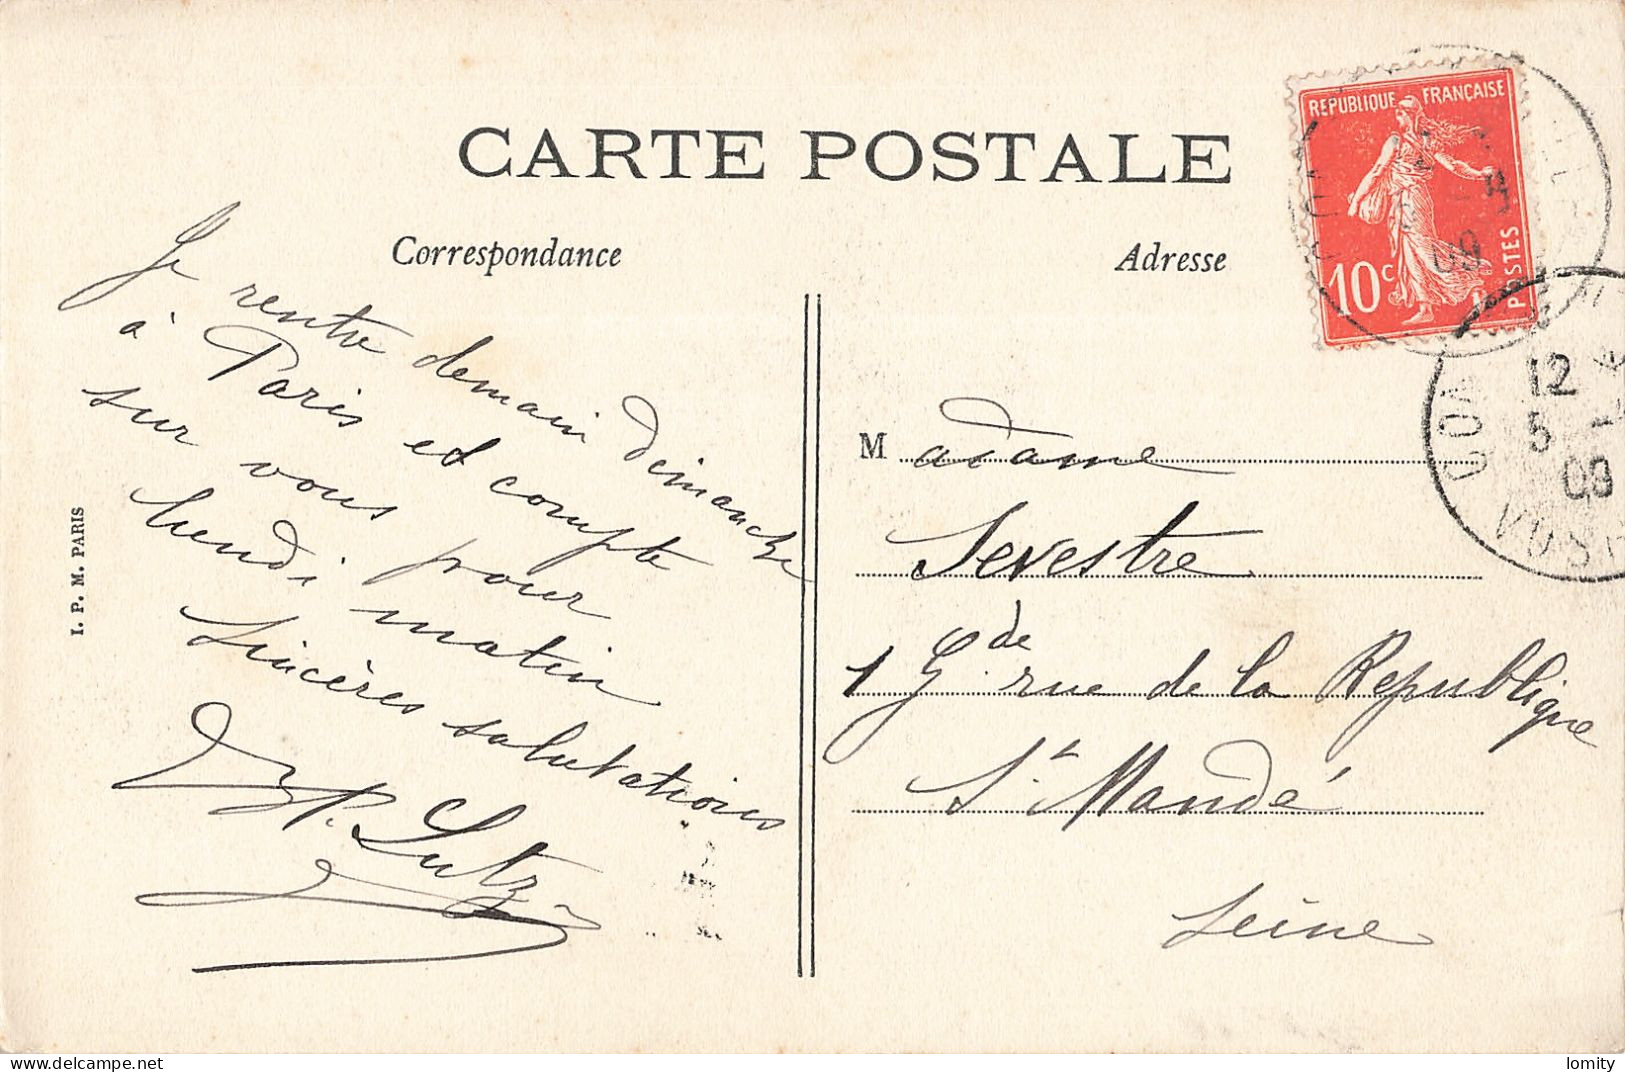 CARTE POSTALE
Correspondance
Adresse
REPUBLIQUE FRANÇAISE
10c
POSTES
09
12
5
09
VOSG
Je rentre demain dimanche
à Paris et compte
sur vous pour
lundi matin
Sincères salutations
P. Lutz
I. P. M. PARIS
Madame
Sevestre
1 Gde rue de la Republique
St Mandé
Seine
lomity